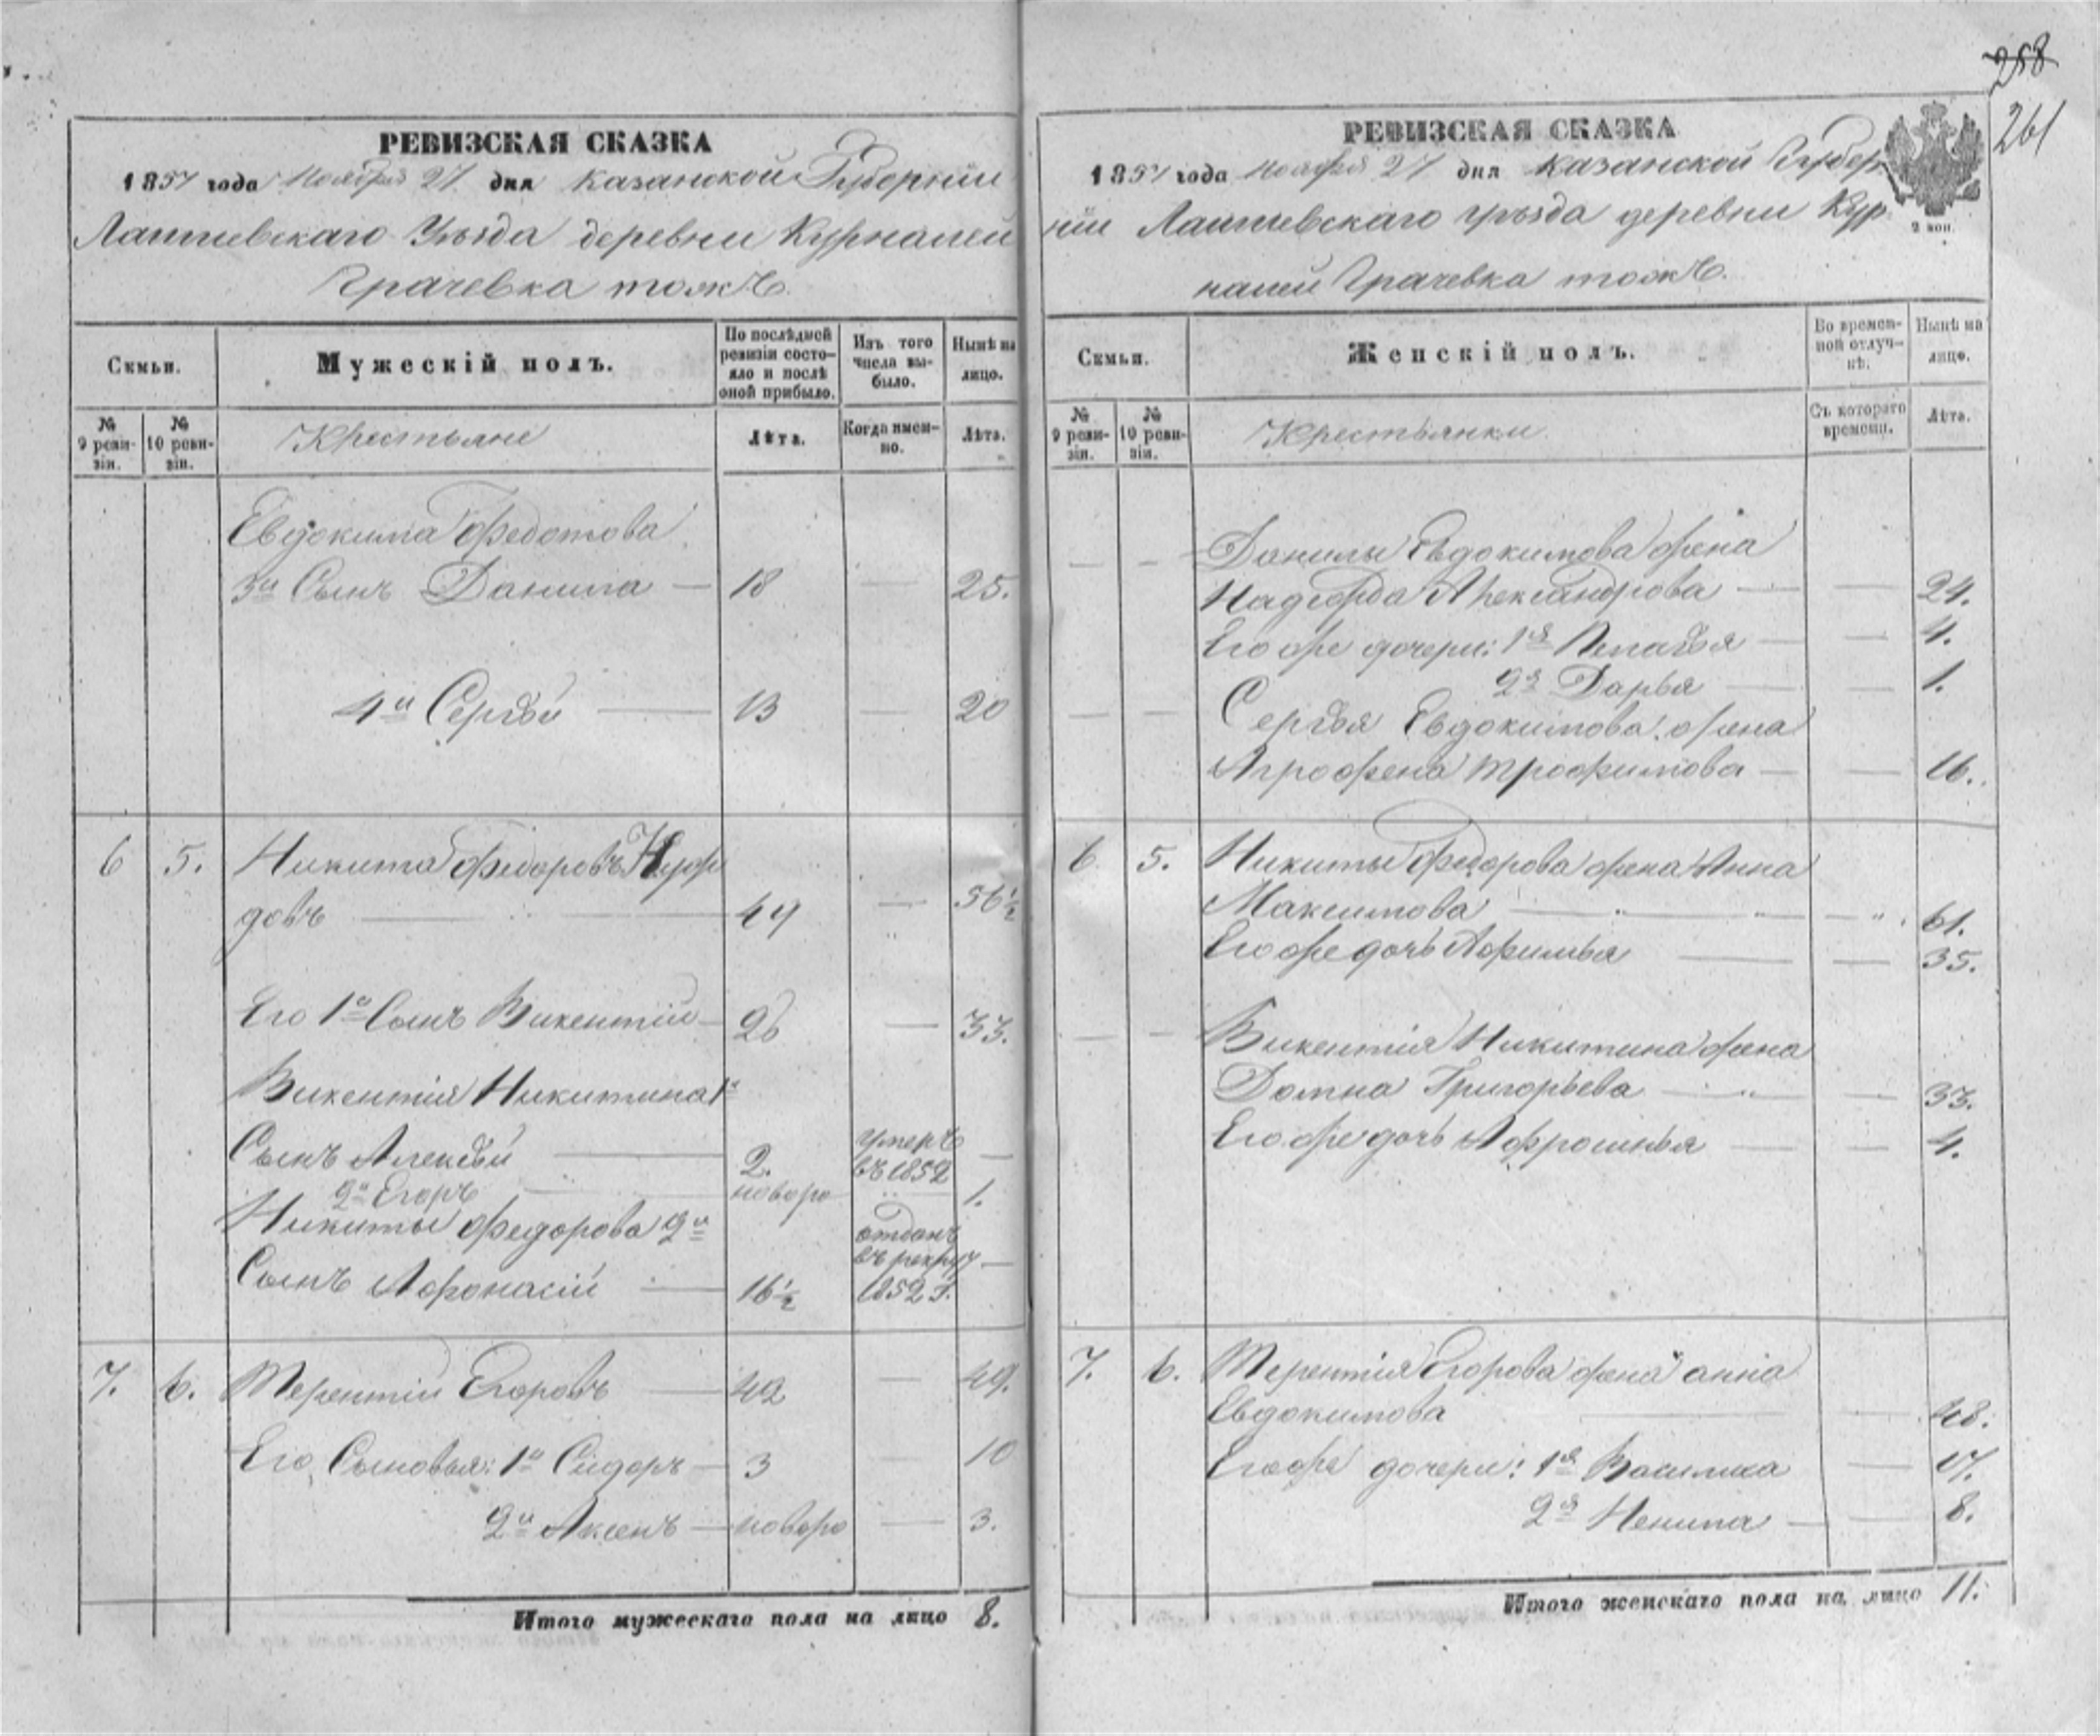 258
261
РЕВИЗСКАЯ СКАЗКА
1857 года Ноября 27 дня Казанской Губернии
Лаишевскаго Уѣзда деревни Курналей
Грачевка тожъ.
Семьи.
Мужескій полъ.
По послѣдней ревизіи состояло и послѣ оной прибыло.
Изъ того числа выбыло.
Нынѣ на лицо.
№ 9 ревизіи.
№ 10 ревизіи.
Крестьяне
Лѣта.
Когда именно.
Лѣта.
Евдокима Федотова
3й Сынъ Данила — 18 — 25.
4й Сергѣй — 13 — 20
6 5. Никита Федоровъ
довъ — 49 — 56½
Его 1й Сынъ Викентій — 26 — 33.
Викентія Никитина 1й
Сынъ Алексѣй — 2. умеръ въ 1852 —
2й Егоръ новоро — 1.
Никиты Федорова 2й
Сынъ Афонасій — 16½ отданъ въ рекру 1852 г. —
7. 6. Терентій Егоровъ — 42 — 49.
Его Сыновья: 1й Сидоръ — 3 — 10
2й Аксенъ — новоро — 3.
Итого мужескаго пола на лицо 8.
РЕВИЗСКАЯ СКАЗКА
1857 года Ноября 27 дня Казанской Губер
ніи Лаишевскаго уѣзда деревни Кур
налей Грачевка тожъ.
2 коп.
Семьи.
Женскій полъ.
Во временной отлучкѣ.
Нынѣ на лицо.
№ 9 ревизіи.
№ 10 ревизіи.
Крестьянки
Съ котораго времени.
Лѣта.
— — Данилы Евдокимова жена
Надежда Александрова — — 24.
Его же дочери: 1я Пелагѣя — — 4.
2я Дарья — — 1.
— — Сергѣя Евдокимова жена
Агрофена Трофимова — — 16.
6 5. Никиты Федорова жена Анна
Максимова — — 61.
Его же дочь Афимья — — 35.
— — Викентія Никитина жена
Домна Григорьева — — 33.
Его же дочь Афросинья — — 4.
7. 6. Терентія Егорова жена анна
Евдокимова — — 48.
Его же дочери: 1я Василиса — 17.
2я Ненила — — 8.
Итого женскаго пола на лицо 11.